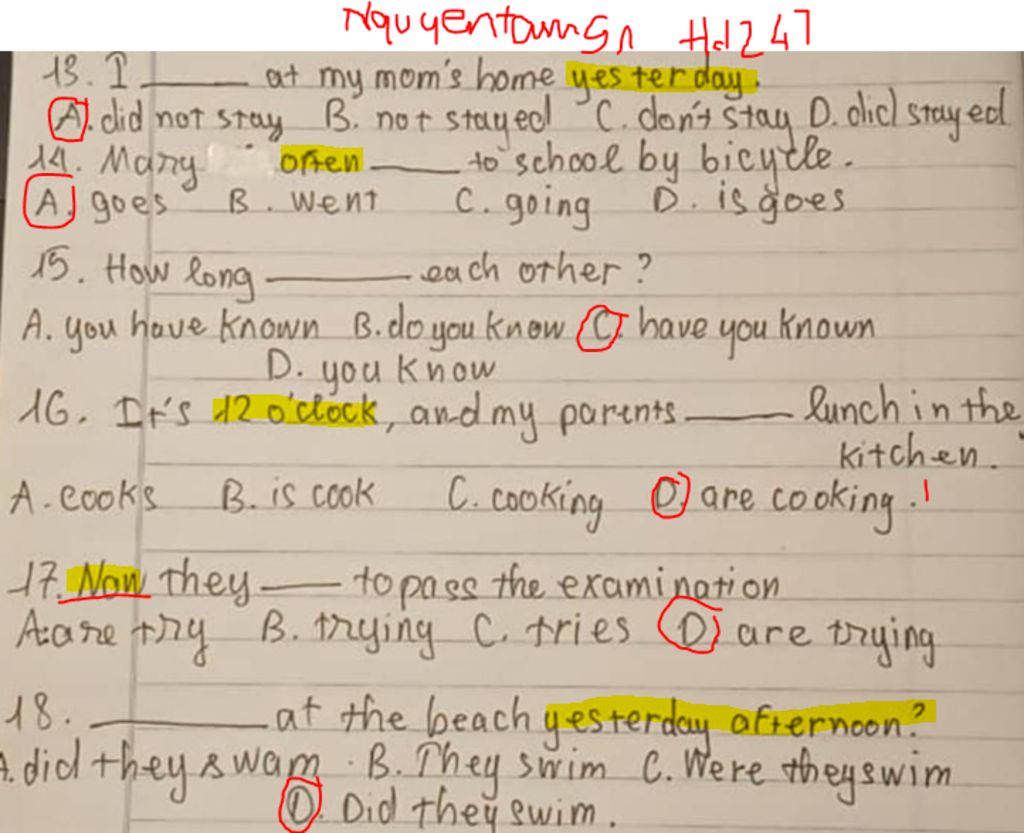 NguyentamSn Hd247
13. I ______ at my mom's home yesterday.
A. did not stay B. not stayed C. don't stay D. did stayed
14. Mary often ______ to school by bicycle.
A. goes B. went C. going D. is goes
15. How long ______ each other?
A. you have known B. do you know C. have you known
D. you know
16. It's 12 o'clock, and my parents ______ lunch in the
kitchen.
A. cooks B. is cook C. cooking D. are cooking.
17. Now they ______ to pass the examination
A. are try B. trying C. tries D. are trying
18. ______ at the beach yesterday afternoon?
A. did they swam. B. They swim C. Were they swim
D. Did they swim.